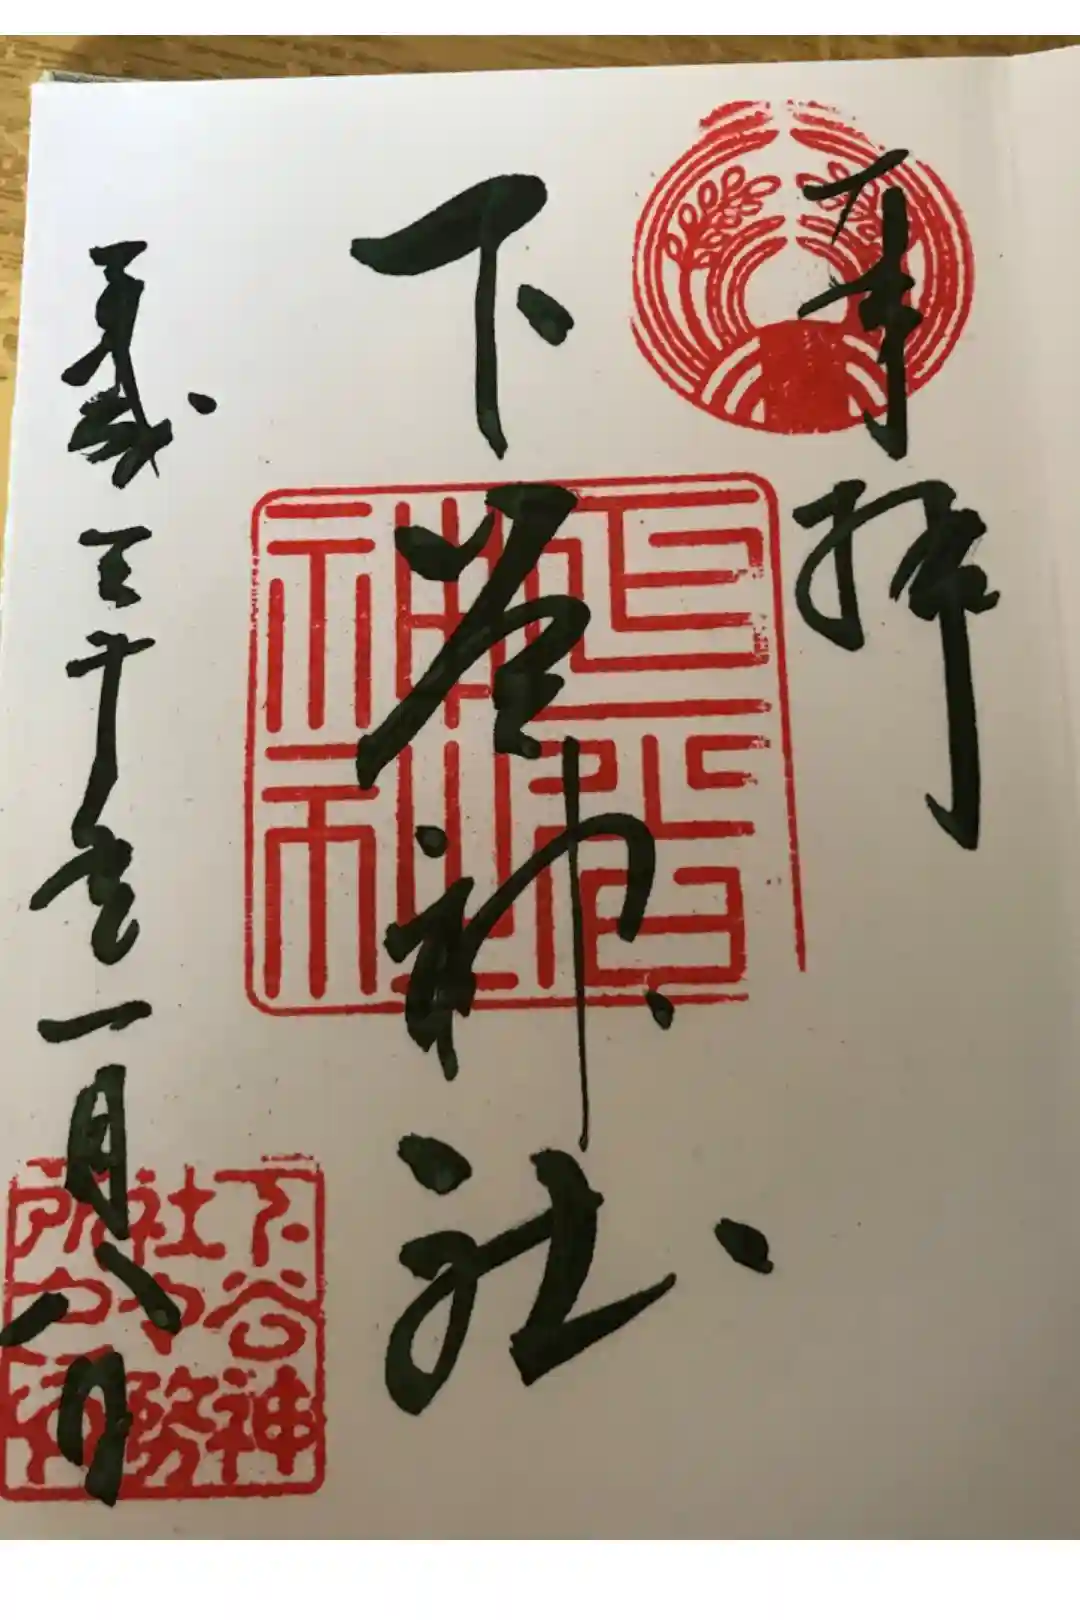 奉拝
下谷神社
下谷神社
平成三十壱年一月八日
下谷神
社
務
所